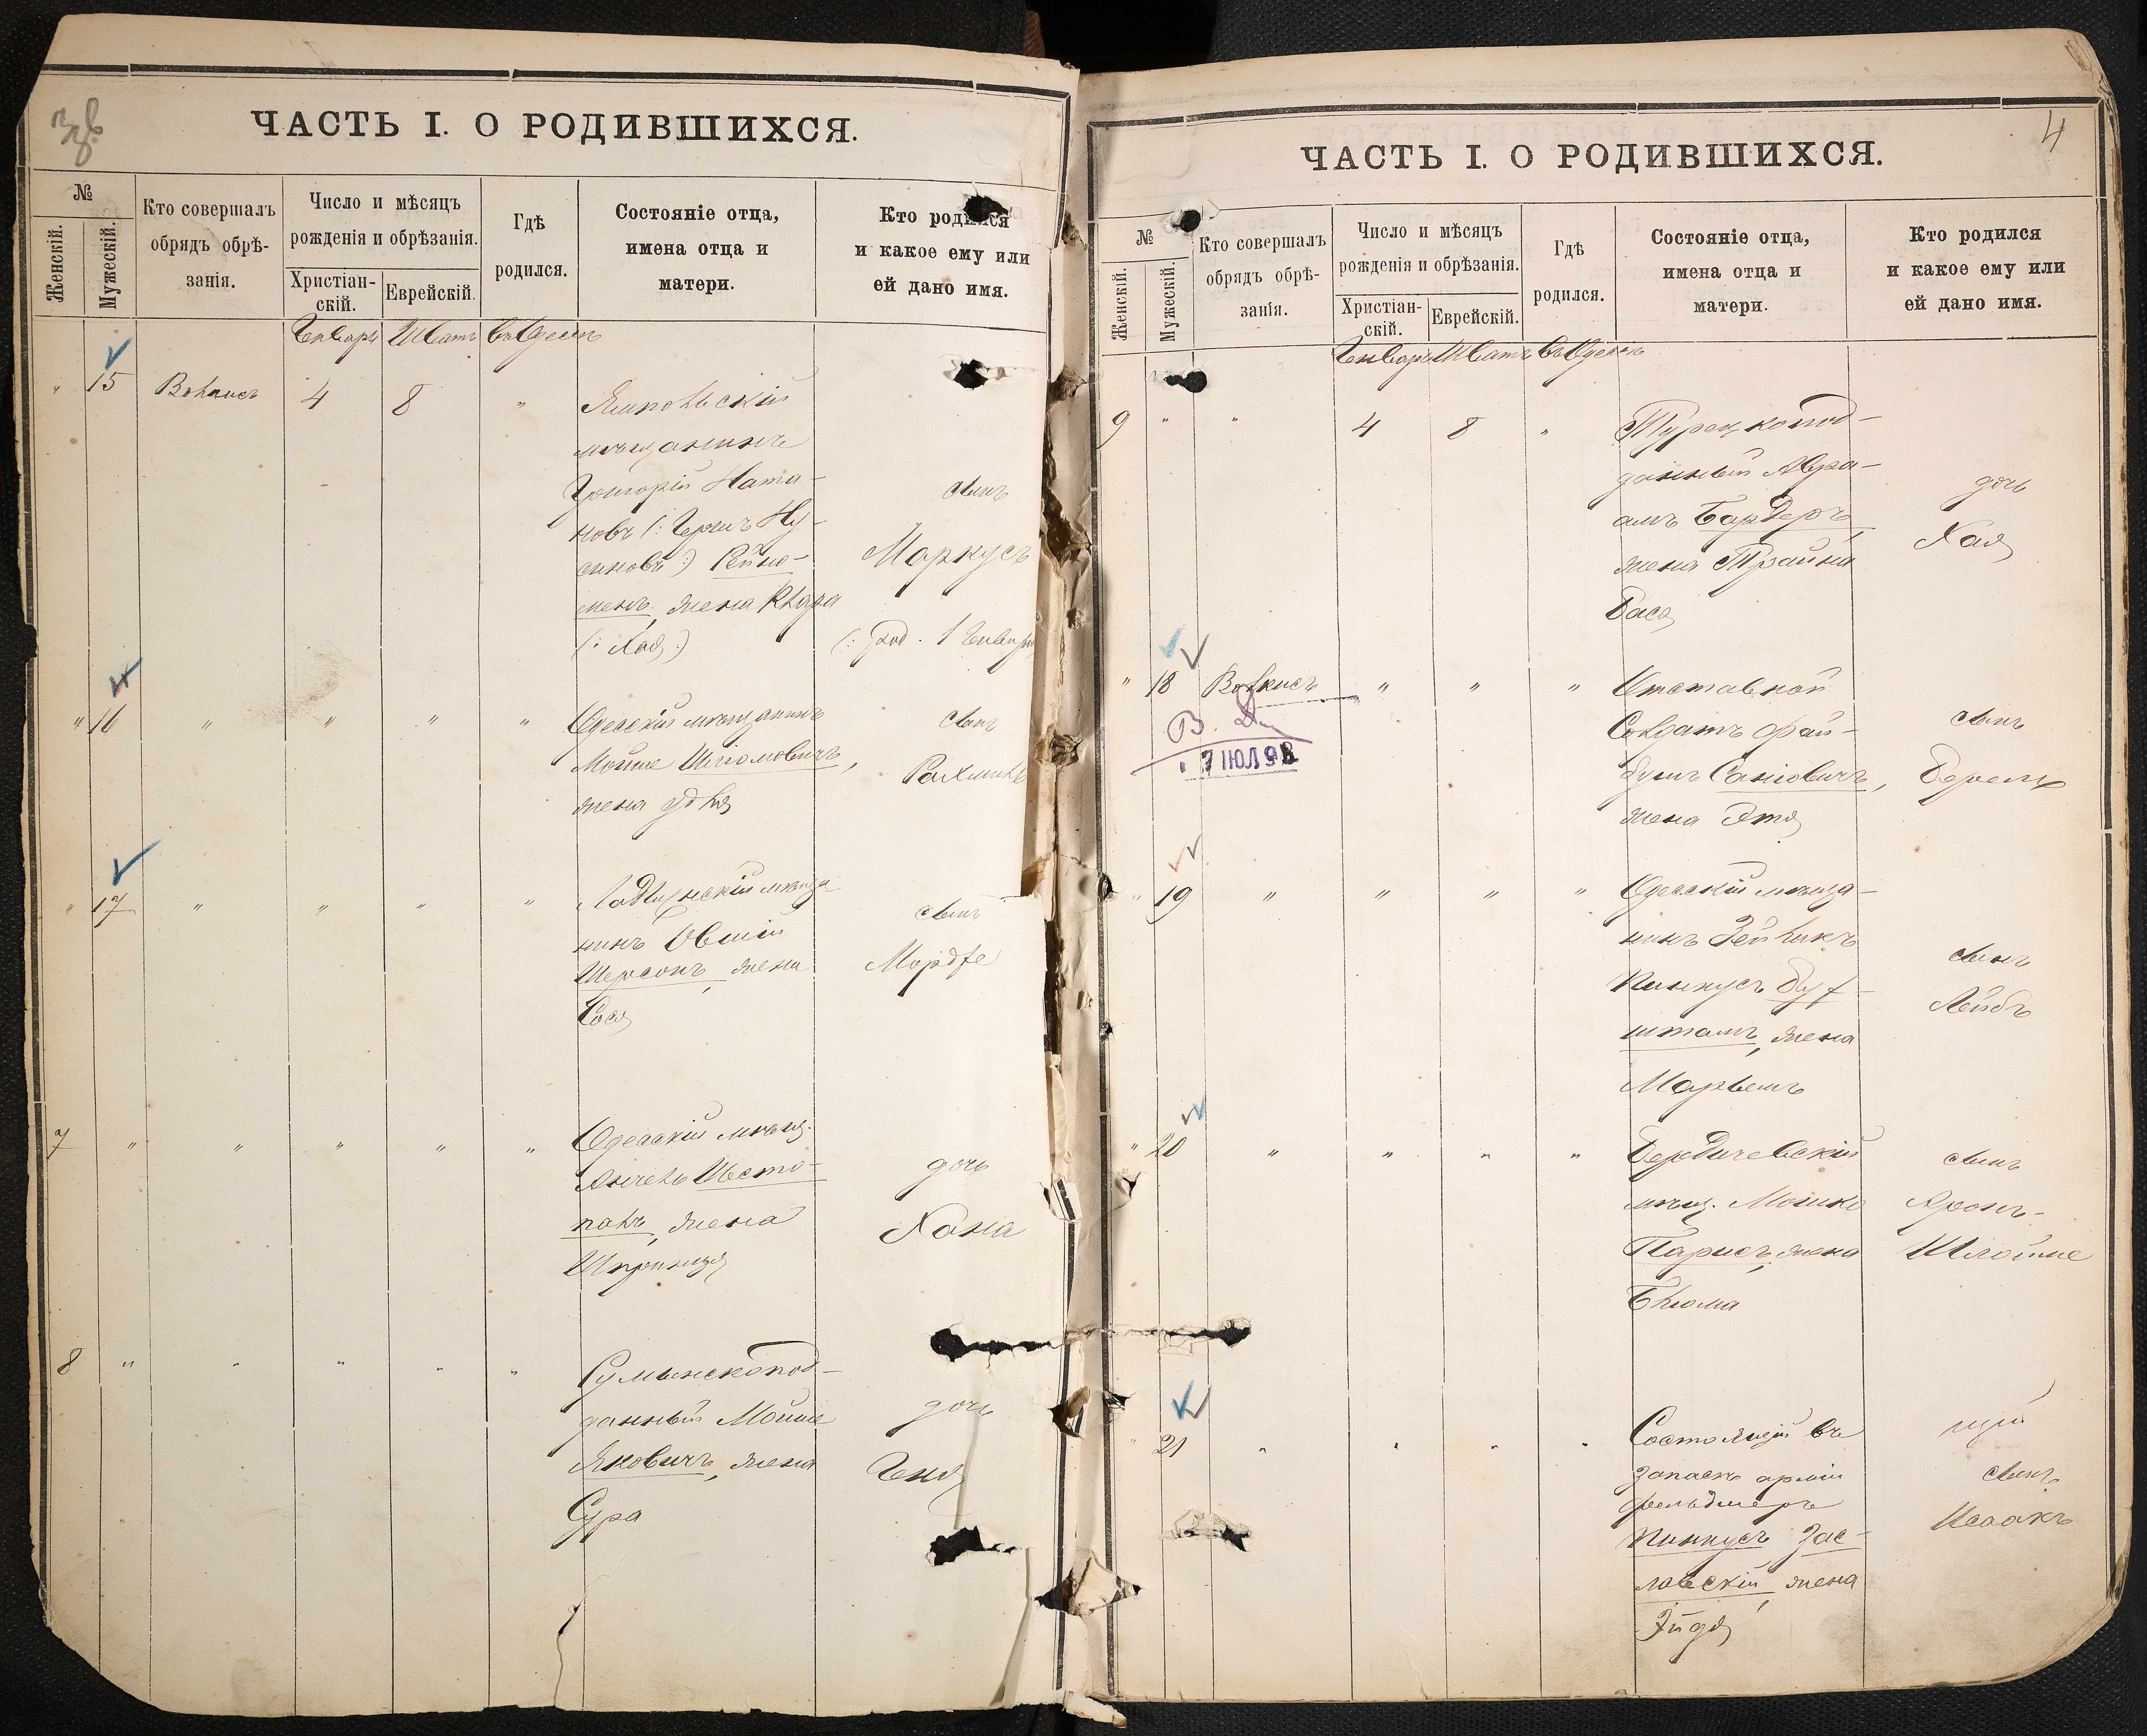 ЧАСТЬ I. О РОДИВШИХСЯ.
№
Женскій.
Мужескій.
Кто совершалъ
обрядъ обрѣ-
занія.
Число и мѣсяцъ
рожденія и обрѣзанія.
Христіан-
скій.
Еврейскій.
Гдѣ
родился.
Состояніе отца,
имена отца и
матери.
Кто родился
и какое ему или
ей дано имя.
Генварь Шватъ въ Одессѣ
" 15 Волкисъ 4 8 "
Ямпольскій
мѣщанинъ
Григорій Ната-
новъ (: Герш Ну-
синовъ :) Рейне-
менъ, жена Клара
(: Хая :)
сынъ
Маркусъ
(: род. 1 Генваря
" 16 " " " "
Одесскій мѣщанинъ
Мойше Шліомовичъ,
жена Удля
сынъ
Рахмиль
" 17 " " " "
Ладыжскій мѣща-
нинъ Овшій
Шерсонъ, жена
Сося
сынъ
Мордхе
7 " " " " "
Одесскій мѣщ.
Анчель Шесто-
палъ, жена
Шпринця
дочь
Хана
8 " " " " "
Румынскопод-
данный Мойше
Яковичъ, жена
Сура
дочь
Геня
4
ЧАСТЬ I. О РОДИВШИХСЯ.
№
Женскій.
Мужескій.
Кто совершалъ
обрядъ обрѣ-
занія.
Число и мѣсяцъ
рожденія и обрѣзанія.
Христіан-
скій.
Еврейскій.
Гдѣ
родился.
Состояніе отца,
имена отца и
матери.
Кто родился
и какое ему или
ей дано имя.
Генварь Шватъ въ Одессѣ
9 " " 4 8 "
Турецкопод-
данный Авра-
амъ Бардеръ,
жена Трайна
Бася
дочь
Хая
" 18 Волкисъ " " "
7 ІЮЛ 98
Отставной
Солдатъ Фай-
бушъ Саніовичъ,
жена Этя
сынъ
Берелъ
" 19 " " " "
Одесскій мѣща-
нинъ Зейликъ
Пинкусъ Бух-
штамъ, жена
Марьемъ
сынъ
Лейбъ
" 20 " " " "
Бердичевскій
мѣщ. Мошко
Парисъ, жена
Блюма
сынъ
Аронъ-
Шлойме
" 21 " " " "
Состоящій въ
запасѣ арміи
фельдшеръ
Пинкусъ Зас-
лавскій, жена
Зйдя
щій
сынъ
Исаакъ